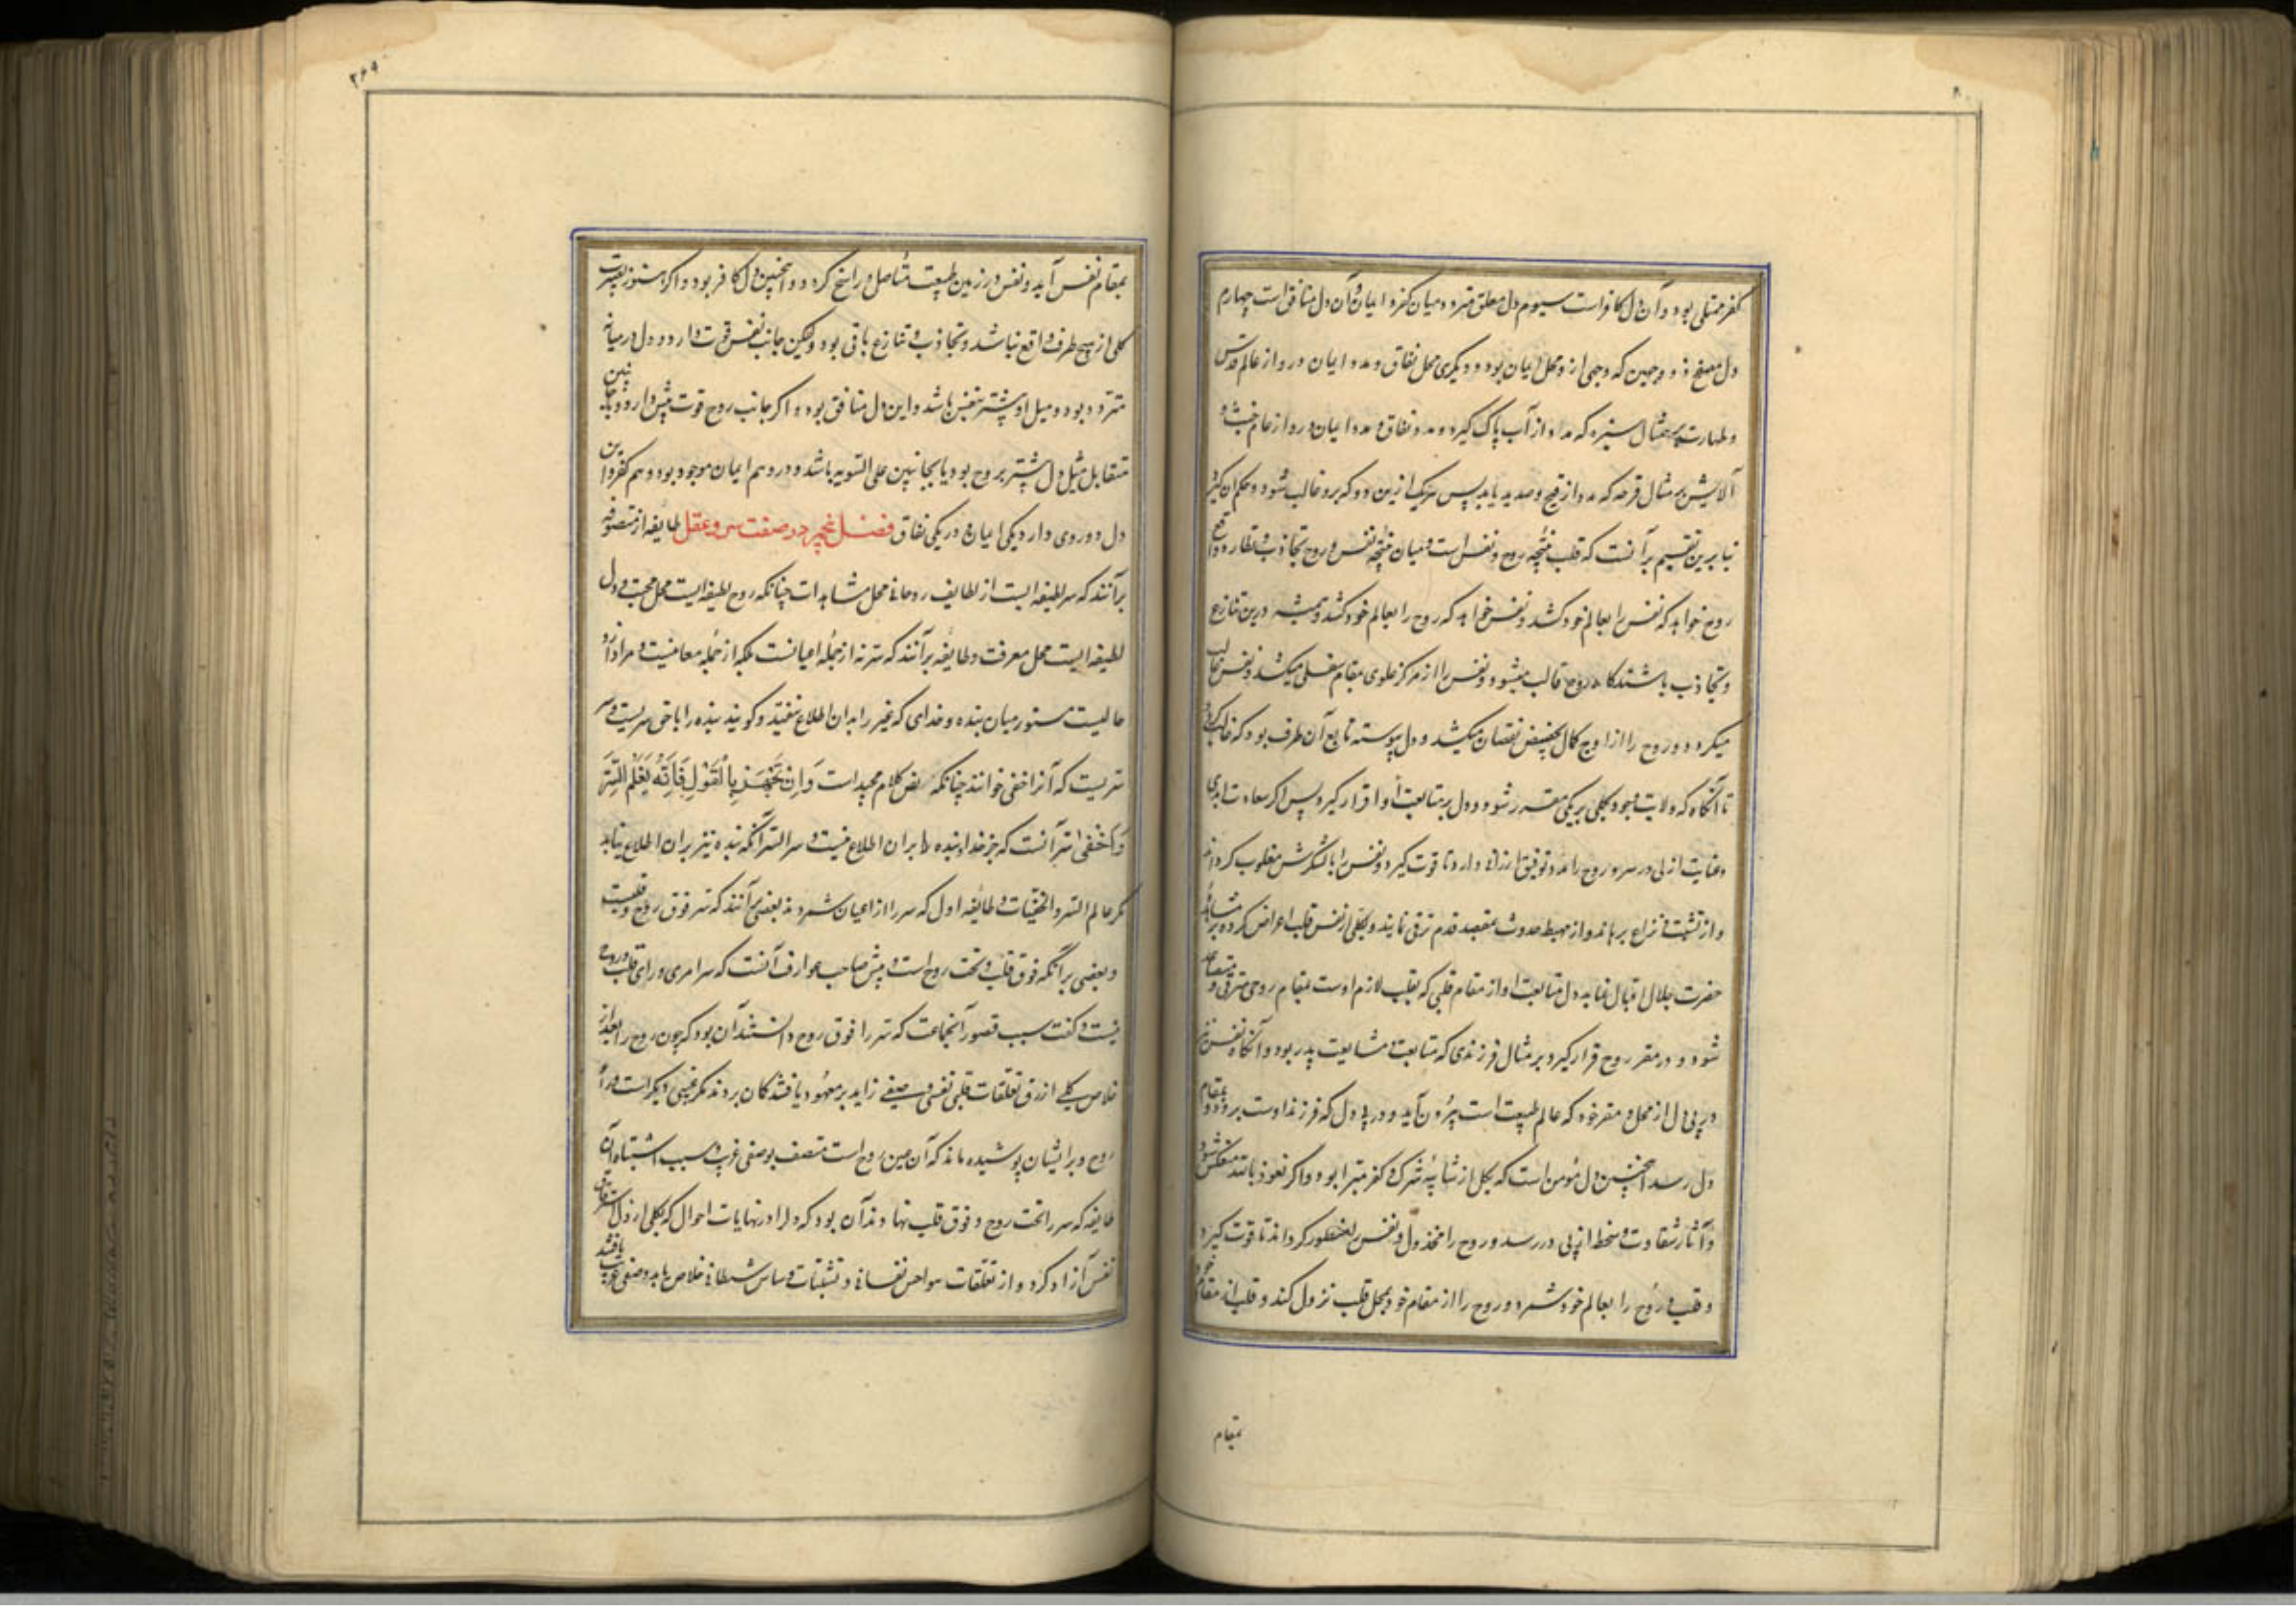 کفر ممتلی بود و آن دل کافر است سیوم دل معلق متردد میان کفر و ایمان و آن دل منافق است چهارم
دل مصفح ذو وجهین که وجهی از و محل ایمان بود و دیگری محل نفاق و مدد ایمان در و از عالم قدس
و طهارت بر مثال سبزه که مدد از آب پاک گیرد و مدد نفاق درو از عالم خبث و
آلایش بر مثال قرحه که مدد از قیح و صدید یابد پس هر یک ازین دو که برو غالب شود حکم آن گیرد
بنا برین تقسیم بر آنست که قلب نتیجه روح و نفس است و میان نتیجه نفس و روح تجاذب و تطارد واقع
روح خواهد که نفس را بعالم خود کشد و نفس خواهد که روح را بعالم خود کشد و همیشه درین تنازع
و تجاذب باشند گاه روح غالب میشود و نفس را از مرکز علوی بمقام سفلی میکشد و نفس غالب
میگردد و روح را از اوج کمال بحضیض نقصان میکشد و دل پیوسته تابع آن طرف بود که غالب گردد
تا آنگاه که ولایت وجود بکلی بر یکی مقرر شود و دل بر متابعت او قرار گیرد پس اگر سعادت ابدی
و عنایت ازلی در رسد و روح را مدد توفیق ارزانی دارد تا قوت گیرد و نفس را با لشکرش مغلوب گرداند
و از تشبث نزاع برهاند و از مهبط حدوث بمصعد قدم ترقی نماید و بکلی از نفس و قلب اعراض کرده بر مشاهده
حضرت جلال اقبال نماید دل بمتابعت او از مقام قلبی که تقلب لازم اوست بمقام روحی مترقی و متصاعد
شود و در مقر روح قرار گیرد بر مثال فرزندی که متابعت و مشایعت پدر بود و آنگاه نفس نیز
در پی دل از محل و مقر خود که عالم طبیعت است بیرون آید و در پی دل که فرزند اوست برود و بمقام
دل رسد اینچنین دل مؤمن است که بکل از شایبه شرک و کفر مبرا بود و اگر نعوذ بالله منعکس شود
و آثار شقاوت و سخط ازلی در رسد و روح را مخذول و نفس را مظفر گرداند تا قوت گیرد
و قلب و روح را بعالم خود کشد و روح را از مقام خود بمحل قلب نزول کند و قلب از مقام خود
بمقام
۲۶۹
بمقام نفس آید و نفس در زمین طبیعت متأصل و راسخ گردد و اینچنین دل کافر بود و اگر هنوز نصرت
کلی از هیچ طرف واقع نباشد و تجاذب و تنازع باقی بود ولیکن جانب نفس قوت دارد و دل در میانه
متردد بود و میل او بیشتر بنفس باشد و این دل منافق بود و اگر جانب روح قوت بیش دارد و یا جانبین
متقابل میل دل بیشتر بروح بود یا بجانبین علی التسویه باشد و درو هم ایمان موجود بود و هم کفر و این
دل دو روی دارد یکی ایمان و در یکی نفاق فصل پنجم در صفت سر و عقل طایفه از متصوفه
بر آنند که سر لطیفه ایست از لطایف روحانی محل مشاهدات چنانکه روح لطیفه ایست محل محبت و دل
لطیفه ایست محل معرفت و طایفه بر آنند که سر نه از جمله اعیانست بلکه از جمله معانیست و مراد ازو
حالیست مستور میان بنده و خدای که غیر را بدان اطلاع نیفتد و گویند بنده را با حق سریست و سر
سریست که آنرا خفی خوانند چنانکه نص کلام مجید است وَاِنْ تَجْهَرْ بِالْقَوْلِ فَاِنَّهُ يَعْلَمُ السِّرَّ
وَاَخْفَى سر آنست که جز خدا و بنده را بر ان اطلاع نیست و سر السر آنکه بنده نیز بران اطلاع نیابد
مگر عالم السر و الخفیات و طایفه اول که سر را از اعیان شمردند بعضی بر آنند که سر فوق روح و قلبست
و بعضی بر آنکه فوق قلب و تحت روح است و پیش صاحب عوارف آنست که سر امری ورای قلب و روح
نیست و گفت سبب قصور آنجماعت که سر را فوق روح دانستند آن بود که چون روح را بعد از
خلاص کلی از رق تعلقات قلبی و نفسی وصفی زاید بر معهود یافتند گمان بردند مگر عینی دیگر است ورای
روح و برایشان پوشیده ماند که آن عین روح است متصف بوصفی غریب و سبب اشتباه آن
طایفه که سر را تحت روح و فوق قلب نهادند آن بود که دل را در نهایات احوال که بکلی از استرقاق
نفس آزاد گردد و از تعلقات هواجس نفسانی و تشبثات وساوس شیطانی خلاص یابد وصفی غریب یافتند